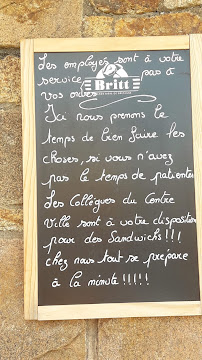 Les employés sont à votre
service pas à
vos ordres
Britt
Ici nous prenons le
temps de bien faire les
choses, si vous n'avez
pas le temps de patienter
Les Collègues du Centre
Ville sont à votre disposition
pour des Sandwichs !!!
chez nous tout se prépare
à la minute !!!!!